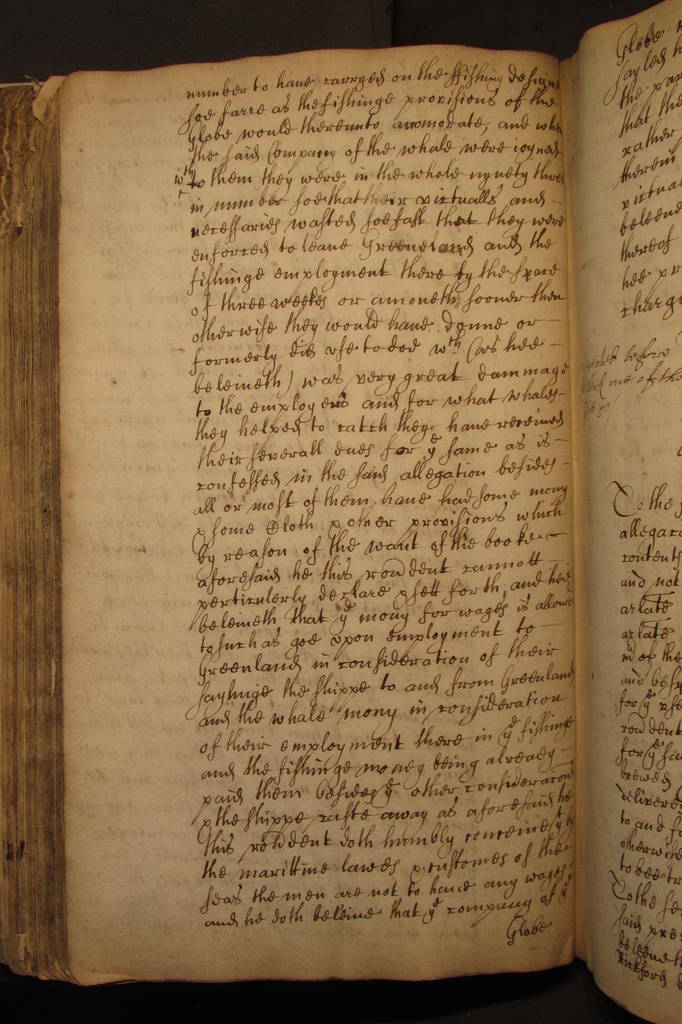 number to haue carryed on the ffishing designe
soe farre as the fishinge provisions of the
Globe would thereunto accomodate, and when
the said Company of the whale were ioyned
wth
to them they were in the whole nynety three
in number soe that their victualls and
necessaries wasted soe fast that they were
enforced to leaue Greeneland and the
fishinge employment there by the space
of three weekes or a moneth sooner then
otherwise they would haue donne or
formerly did vse to doe wch (as hee
beleiueth) was very great dammage
to the employers and for what whales
they helped to catch they haue receiued
their severall dues for ye same as is
confessed in the said allegation besides
all or most of them haue had some mony
& some Cloth & other provisions which
by reason of the want of the booke
aforesaid he this rondent cannott
perticulerly declare & sett forth, and hee
beleiueth that ye mony for wages is allowed
to such as goe vpon employment to
Greenland in consideration of their
saylinge the shippe to and from Greenland
and the whale mony in consideration
of their employment there in ye fishinge
and the fishinge money being already
paid them besides ye other consideracons
& the shippe caste away as aforesaid he
this rondent doth humbly conceiue yt by
the marittine lawes & customes of the
seas the men are not to haue any wages
and he doth beleiue that ye company of ye
Globe
Globe
that the
rather
therein
beleeue
thereof
before
To the
allegac
and not
arlate
arlate
in of the
rondent
for ye sa
delivered
to and
otherwise
to bee
To the se
said pre
beleeue